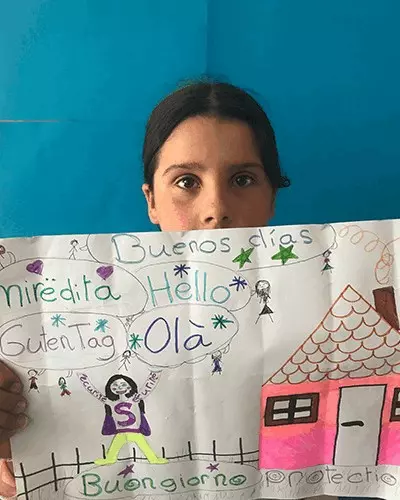 Buenos días
mirëdita
Hello
Guten Tag
Olà
S
Buongiorno
protectio